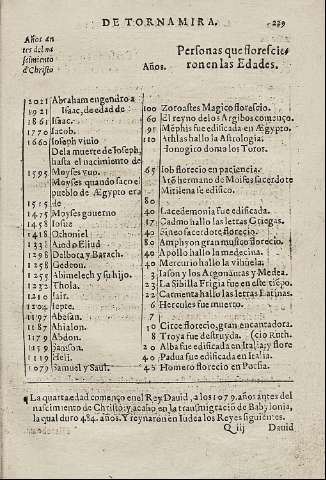 DE TORNAMIRA. 239
Años an
tes del na
scimiento
d'Christo
Personas que florescie
Años. ron en las Edades.
2021 Abraham engendro a
1921 Isaac, de edad de
1861 Isaac.
1770 Iacob.
1660 Ioseph viuio
De la muerte de Ioseph,
hasta el nacimiento de
1595 Moyses vuo.
Moyses quando saco el
pueblo de Ægypto era
1515 de
1475 Moyses gouerno
1458 Iosue
1418 Othoniel
1338 Aiod o Eliud
1298 Delbora y Barach.
1258 Gedeon.
1255 Abimelech y su hijo.
1232 Thola.
1210 Iair.
1204 Iepte.
1197 Abesan.
1187 Ahialon.
1179 Abdon.
1159 Sanson.
1119 Heli.
1079 Samuel y Saul.
100 Zoroastes Magico florescio.
60 El reyno de los Argibos començo.
91 Mẽphis fue edificada en Ægypto.
110 Athlas hallo la Astrologia:
65 Iob florecio en paciencia.
hermano de Moises sacerdote
Mitilena se edifico.
80
40 Lacedemonia fue edificada.
17 Cadmo hallo las letras Griegas.
40 Sineo sacerdote florecio.
80 Amphyon gran musico florecio.
40 Apolo hallo la medecina.
40 Mercurio hallo la vihuela.
3 Iason y los Argonautas y Medea.
23 La Sibilla Frigia fue en este tiẽpo.
22 Carmenta hallo las letras Latinas.
6 Hercules fue muerto.
7
10 Circe florecio, gran encantadora.
8 Troya fue destruyda. (cio Ruth.
20 Alba fue edificada en Italia, y flore
40 Padua fue edificada en Italia.
45 Homero florecio en Poesia.
La quarta edad començo en el Rey Dauid, a los 1079. años antes del
nascimiento de Christo: y acabo en la transmigracio de Babylonia,
la qual duro 484. años. Y reynaron en Iudea los Reyes siguientes.
Q iij Dauid